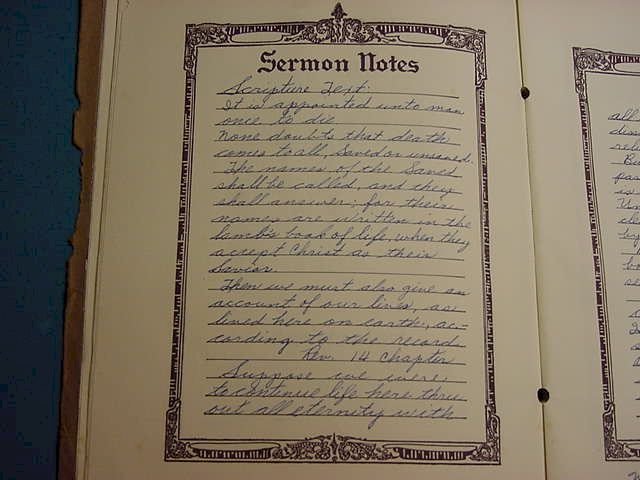 Sermon Notes
Scripture Text:
It is appointed unto man
once to die
None doubts that death
comes to all, Saved or unsaved.
The names of the Saved
shall be called, and they
shall answer; for their
names are written in the
lamb's book of life, when they
accept Christ as their
Savior.
Then we must also give an
account of our lives, as
lived here on earth, ac-
cording to the record
Rev. 14 Chapter
Suppose we were
to continue life here thru
out all eternity with
all